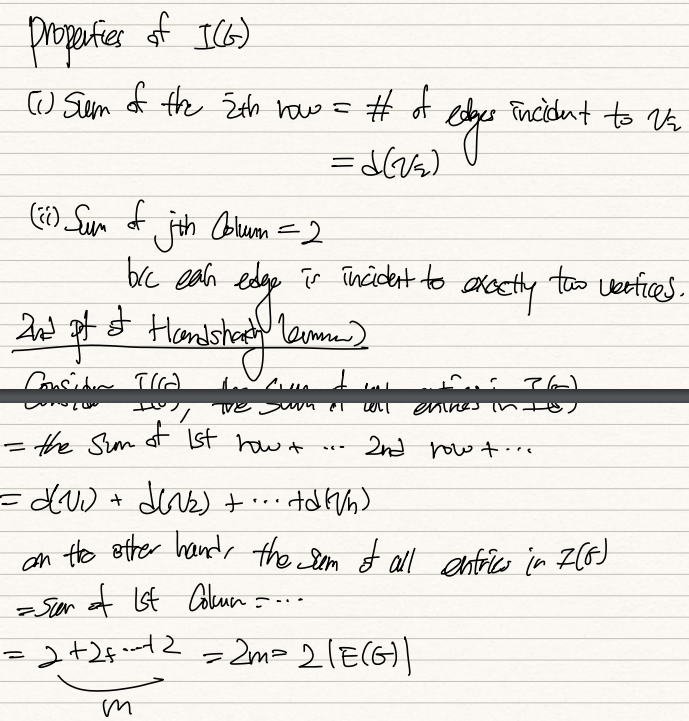 Properties of I(G)
(i) Sum of the ith row = # of edges incident to vᵢ
= d(vᵢ)
(ii) Sum of jth Column = 2
b/c each edge is incident to exactly two vertices.
2nd pf of Handshaking lemma)
Consider I(G), the sum of all entries in I(G)
= the sum of 1st row + ... 2nd row + ...
= d(v₁) + d(v₂) + ... + d(vₙ)
on the other hand, the sum of all entries in I(G)
= sum of 1st Column = ...
= 2 + 2 + ... + 2 = 2m = 2|E(G)|
m